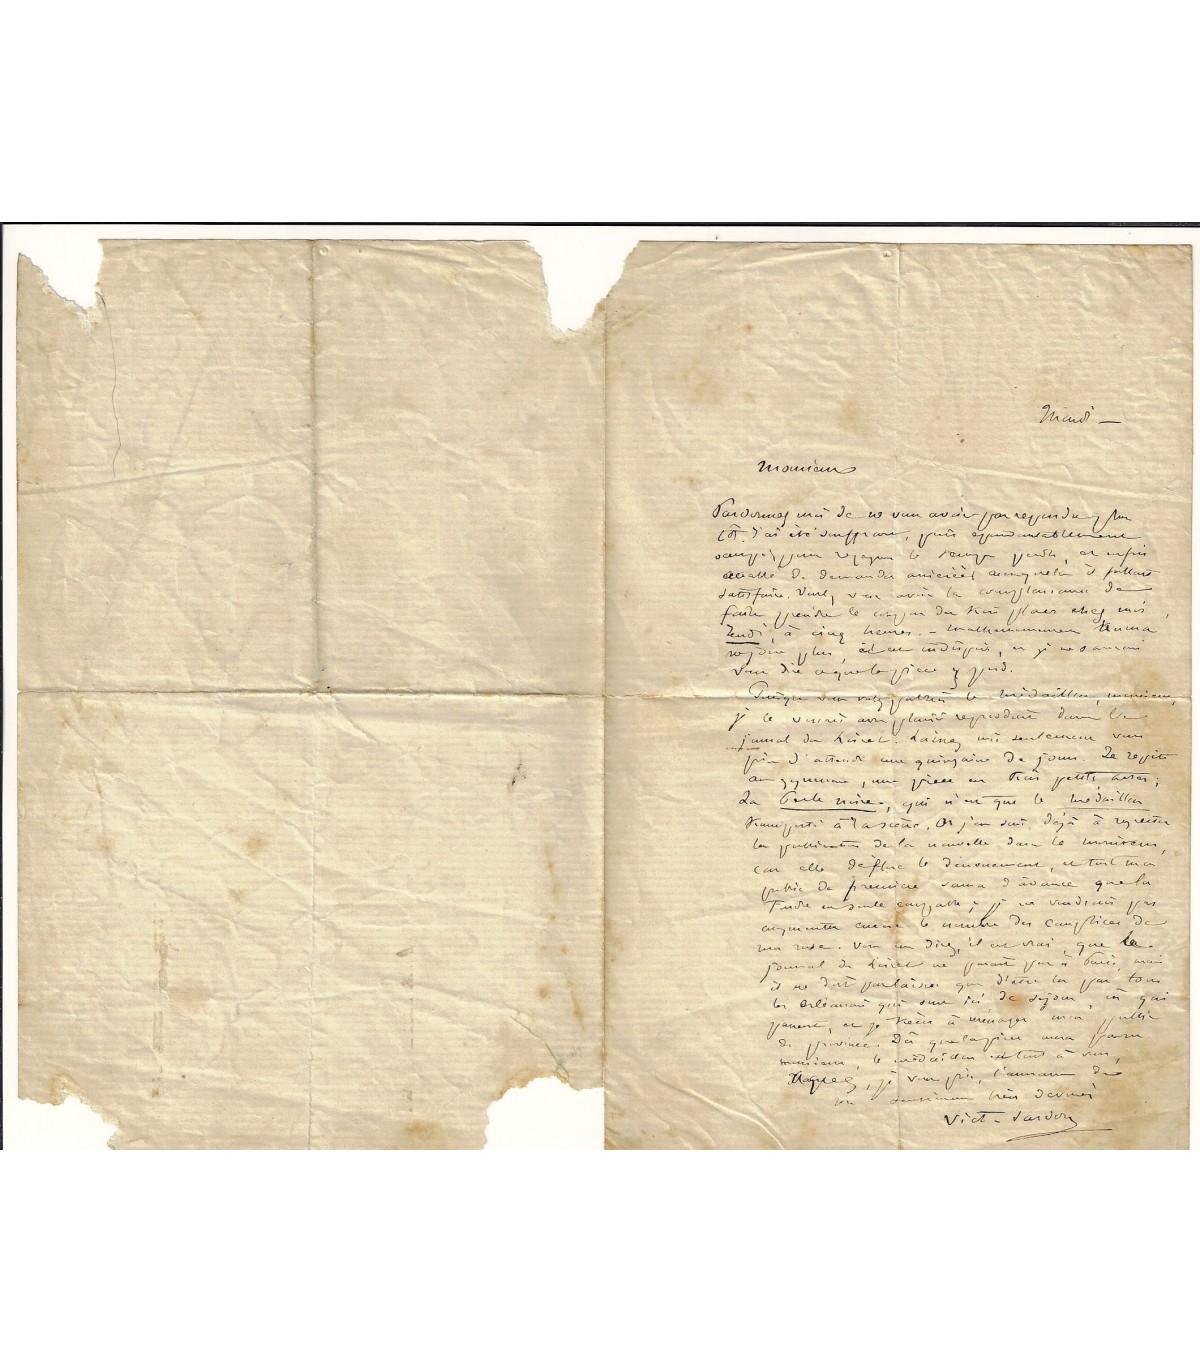 Mardi —
Monsieur
Pardonnez moi de ne vous avoir pas répondu plus
tôt. J'ai été souffrant, puis épouvantablement
occupé, pour regagner le temps perdu, et enfin
accablé de demandes auxquelles il fallait
satisfaire. Veuillez avoir la complaisance de
faire prendre le coupon des trois places chez moi,
Jeudi, à cinq heures. — Malheureusement
plus, est indisposé, et je ne saurais
vous dire à quelle pièce
Puisque vous voulez publier le médaillon, monsieur,
je le verrai avec plaisir reproduit dans le
journal du Loiret. Laissez moi seulement vous
prier d'attendre une quinzaine de jours. Je répète
au gymnase, une pièce en trois petits actes;
La Perle noire, qui n'est que le médaillon
transporté à la scène. Or j'en suis déjà à regretter
la publication de la nouvelle dans le moniteur,
car elle déflore le dénouement, et tout mon
public de première saura d'avance que la
foudre est seule coupable; je ne voudrais pas
augmenter encore le nombre des complices de
ma ruse. Vous me direz, il est vrai, que le
journal du Loiret ne paraît pas à Paris, mais
il ne doit pas laisser que d'être lu par tous
les Orléanais qui sont ici de séjour, ou qui
passent, et je tiens à ménager mon public
de province. Dès que la pièce aura paru
monsieur, le médaillon est tout à vous,
Agréez, je vous prie, l'assurance de
mes sentiments très dévoués
Vict. Sardou